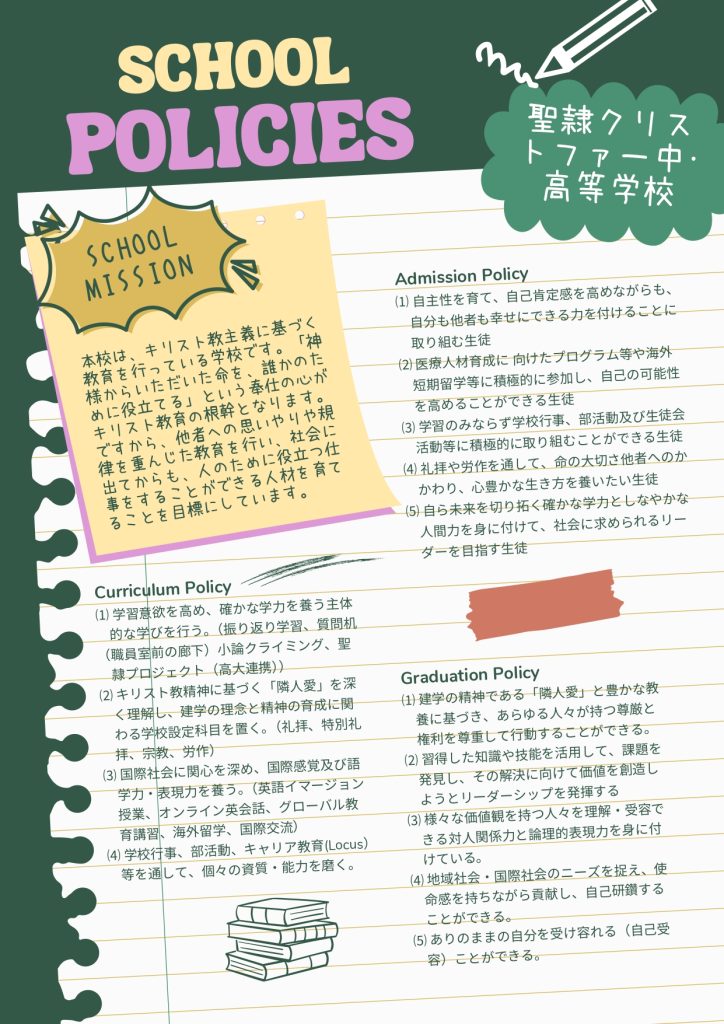 SCHOOL
POLICIES
聖隷クリス
トファー中・
高等学校
SCHOOL
MISSION
本校は、キリスト教主義に基づく
教育を行っている学校です。「神
様からいただいた命を、誰かのた
めに役立てる」という奉仕の心が
キリスト教育の根幹となります。
ですから、他者への思いやりや規
律を重んじた教育を行い、社会に
出てからも、人のために役立つ仕
事をすることができる人材を育て
ることを目標にしています。
Admission Policy
⑴ 自主性を育て、自己肯定感を高めながらも、
自分も他者も幸せにできる力を付けることに
取り組む生徒
⑵ 医療人材育成に 向けたプログラム等や海外
短期留学等に積極的に参加し、自己の可能性
を高めることができる生徒
⑶ 学習のみならず学校行事、部活動及び生徒会
活動等に積極的に取り組むことができる生徒
⑷ 礼拝や労作を通して、命の大切さ他者へのか
かわり、心豊かな生き方を養いたい生徒
⑸ 自ら未来を切り拓く確かな学力としなやかな
人間力を身に付けて、社会に求められるリー
ダーを目指す生徒
Curriculum Policy
⑴ 学習意欲を高め、確かな学力を養う主体
的な学びを行う。（振り返り学習、質問机
（職員室前の廊下）小論クライミング、聖
隷プロジェクト（高大連携））
⑵ キリスト教精神に基づく「隣人愛」を深
く理解し、建学の理念と精神の育成に関
わる学校設定科目を置く。（礼拝、特別礼
拝、宗教、労作）
⑶ 国際社会に関心を深め、国際感覚及び語
学力・表現力を養う。（英語イマージョン
授業、オンライン英会話、グローバル教
育講習、海外留学、国際交流）
⑷ 学校行事、部活動、キャリア教育(Locus)
等を通して、個々の資質・能力を磨く。
Graduation Policy
⑴ 建学の精神である「隣人愛」と豊かな教
養に基づき、あらゆる人々が持つ尊厳と
権利を尊重して行動することができる。
⑵ 習得した知識や技能を活用して、課題を
発見し、その解決に向けて価値を創造し
ようとリーダーシップを発揮する
⑶ 様々な価値観を持つ人々を理解・受容で
きる対人関係力と論理的表現力を身に付
けている。
⑷ 地域社会・国際社会のニーズを捉え、使
命感を持ちながら貢献し、自己研鑽する
ことができる。
⑸ ありのままの自分を受け容れる（自己受
容）ことができる。